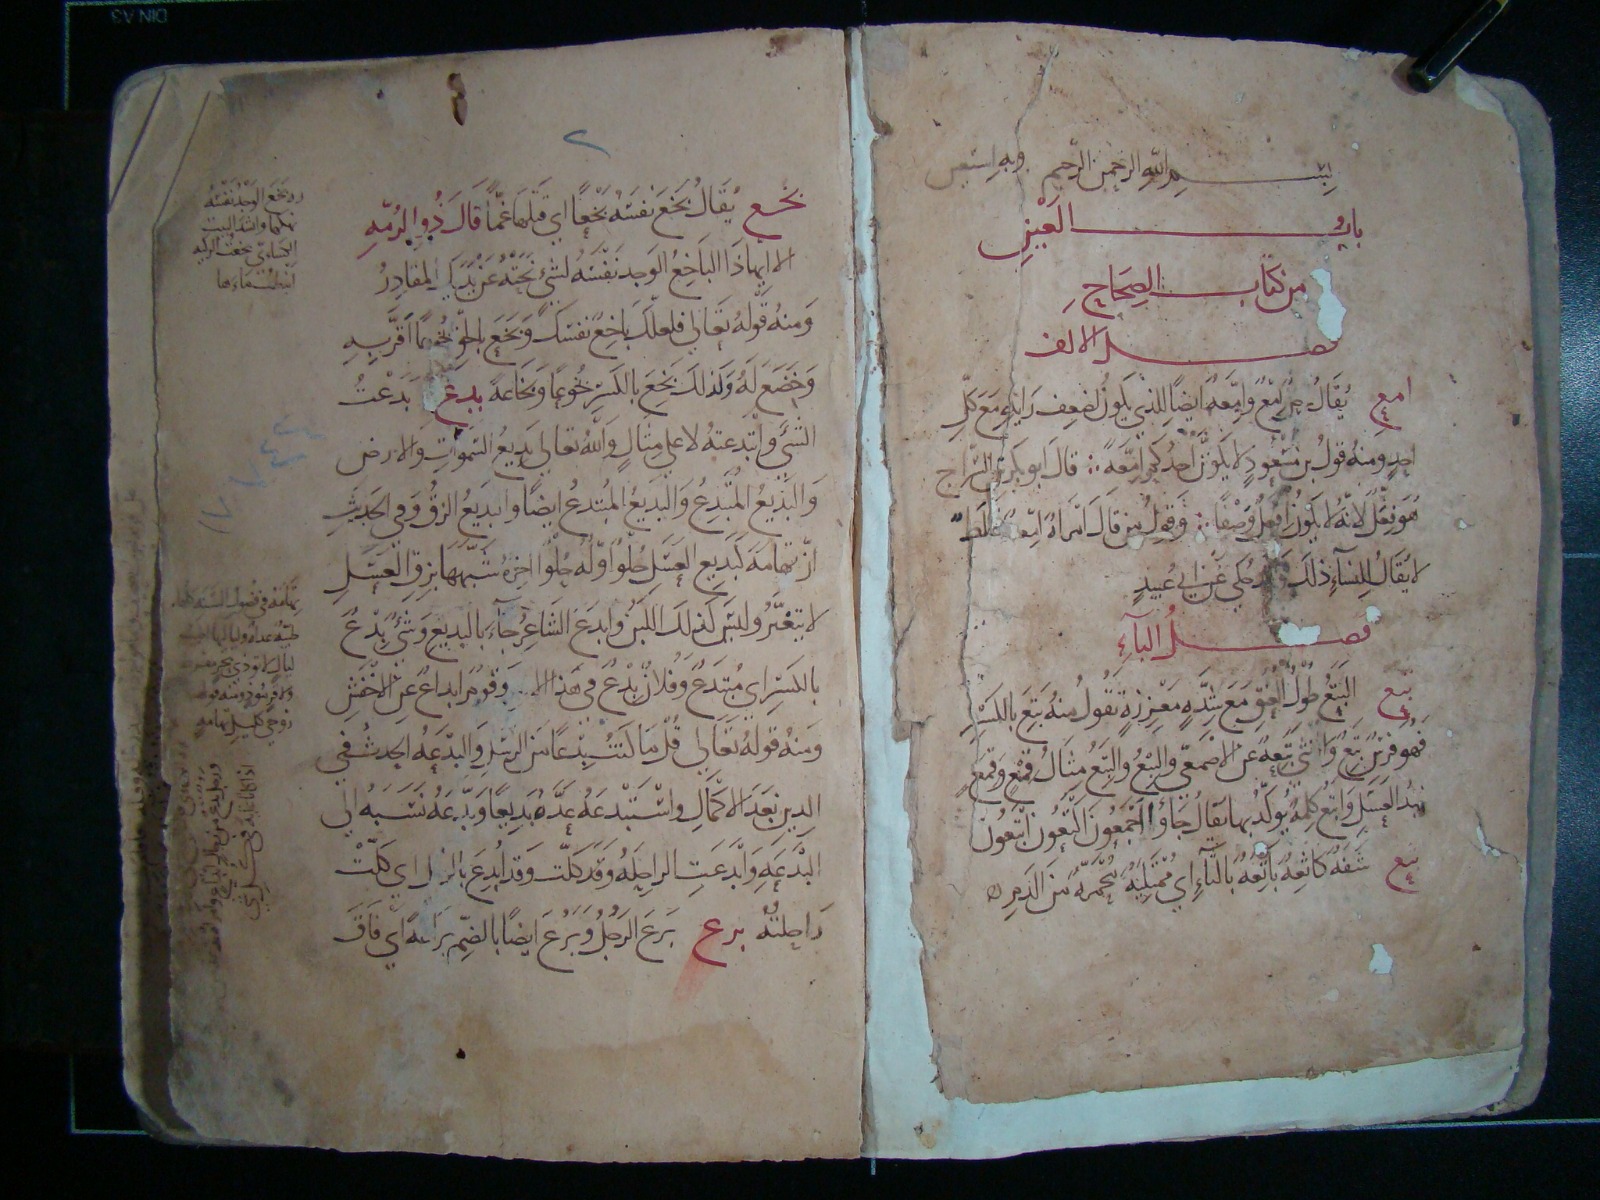 بسم الله الرحمن الرحيم وبه استعين
باب العين
من كتاب الصحاح
فصل الالف
امع يُقَالُ رجل اِمَّع وامَّعة ايضًا للذي يكون لضعف رايه مع كل
احد ومنه قول بن مسعود لا يكونن احدكم امعة قال ابو بكر بن السراج
هو فعل لانه لا يكون افعل وصفا وقول من قال امراة امعة غلط
لا يقال للنساء ذلك وقد حكي عن ابي عبيد
فصل الباء
بتع البتع طول العنق مع شدة مغرزه تقول منه بتع بالكسر
فهو فرس بتع والانثى بتعة عن الاصمعي والبتع والبتع مثال قمع وقمع
نبيذ العسل وابتع كلمة يوكد بها يقال جاؤا اجمعون اكتعون ابتعون
بثع شفة كاثعة باثعة بالثاء اي ممتلية محمرة من الدم
٢
بخع يُقال بَخَعَ نفسَه بَخعًا اي قتلها غمًّا قال ذو الرمة
الا ايهاذا الباخع الوجد نفسه لشي نحته عن يديك المقادر
ومنه قوله تعالى فلعلك باخع نفسك وبخع بالحق بخوعا اقر به
وخضع له وكذلك بخع بالكسر بخوعا وبخاعة بدع بدعت
الشي وابتدعته لا على مثال والله تعالى بديع السموات والارض
والبديع المبتدع والبديع المبتدع ايضا والبديع الزق وفي الحديث
ان تهامة كبديع العسل حلوا اوله حلوا اخره شبهها بزق العسل
لا يتغير وليس كذلك اللبن وابدع الشاعر جاء بالبديع وشي بدع
بالكسر اي مبتدع وفلان بدع في هذا الامر وقوم ابداع عن الاخفش
ومنه قوله تعالى قل ما كنت بدعا من الرسل والبدعه الحدث في
الدين بعد الاكمال واستبدعه عده بديعا وبدعه نسبه الى
البدعه وابدعت الراحلة وقد كلت وقد ابدع بالرجل اي كلت
راحلته برع برع الرجل وبرع ايضا بالضم براعة اي فاق
بخع الوجد نفسه
نهكها وانشد البيت
الكسائي بخعت الركيه
زوجي كليل تهامه